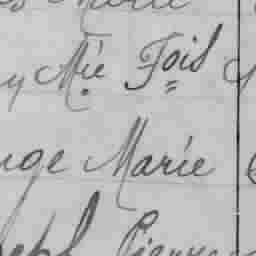 y Mie Fois
nge Marie
seph Pierre